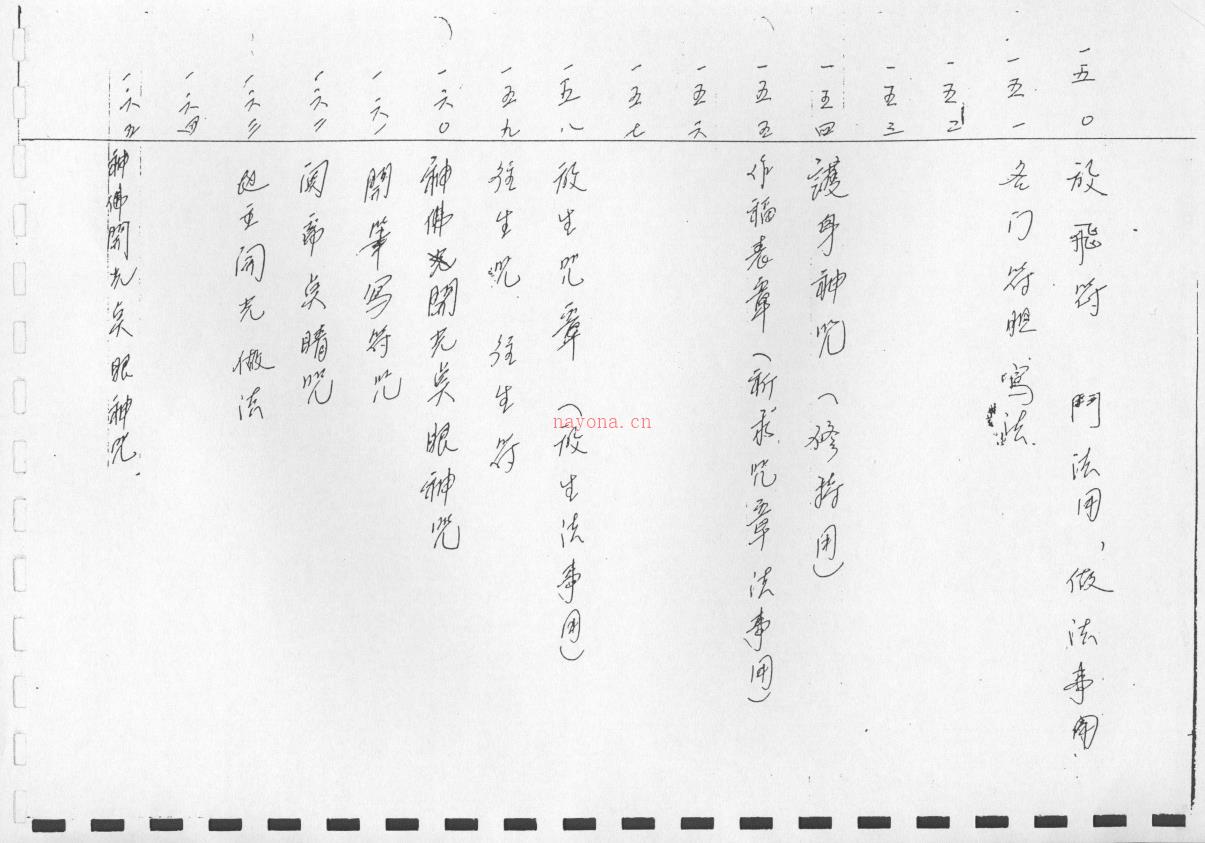 一五〇 放飛符 鬥法用，做法事用
一五一 各门符胆写法
一五二
一五三
一五四 護身神咒（修持用）
一五五 作福表章（祈求咒章法事用）
一五六
一五七
一五八 放生咒章（放生法事用）
一五九 往生咒 往生符
一六〇 神佛開光点眼神咒
一六一 開筆写符咒
一六二 関帝点睛咒
一六三 主開光做法
一六四
一六五 神佛開光点眼神咒.
nayona.cn